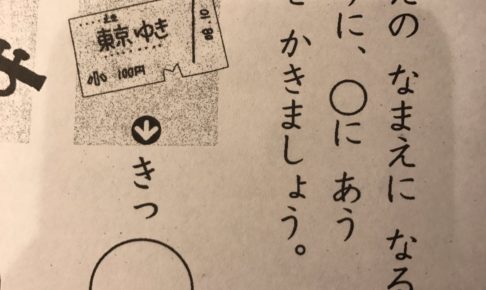 の なまえに なる
に、○に あう
かきましょう。
東京ゆき
小 100円
きっ